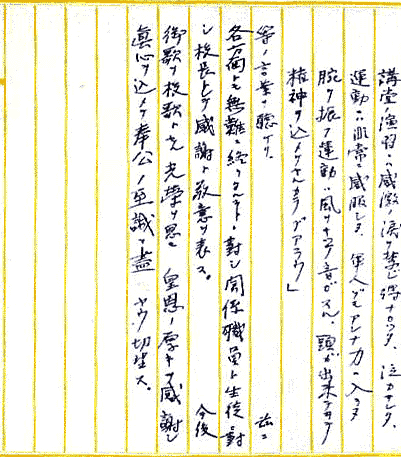 講堂ノ演習ニハ感激ノ涙ヲ禁ジ得ナカッタ、泣カサレタ、
運動ニハ非常ニ感服シタ、軍人デモアレダケ力ノ入ッタ
腕ヲ振ル運動ハ風ヲキル音ガスル、頭ガ出来テ
精神ヲ込メテヰルカラデアラウ」
等ノ言葉ヲ聴ケリ、 茲ニ
各方面トモ無難ニ終リタルコトニ対シ関係職員ト生徒ニ対
シ校長トシテ感謝ト敬意ヲ表ス。 今後
御歌ヲ校歌トセル光栄ヲ思ヒ 皇恩ノ厚キヲ感謝シ
真心ヲ込メテ奉公ノ至誠ヲ盡 ヤウ切望ス。